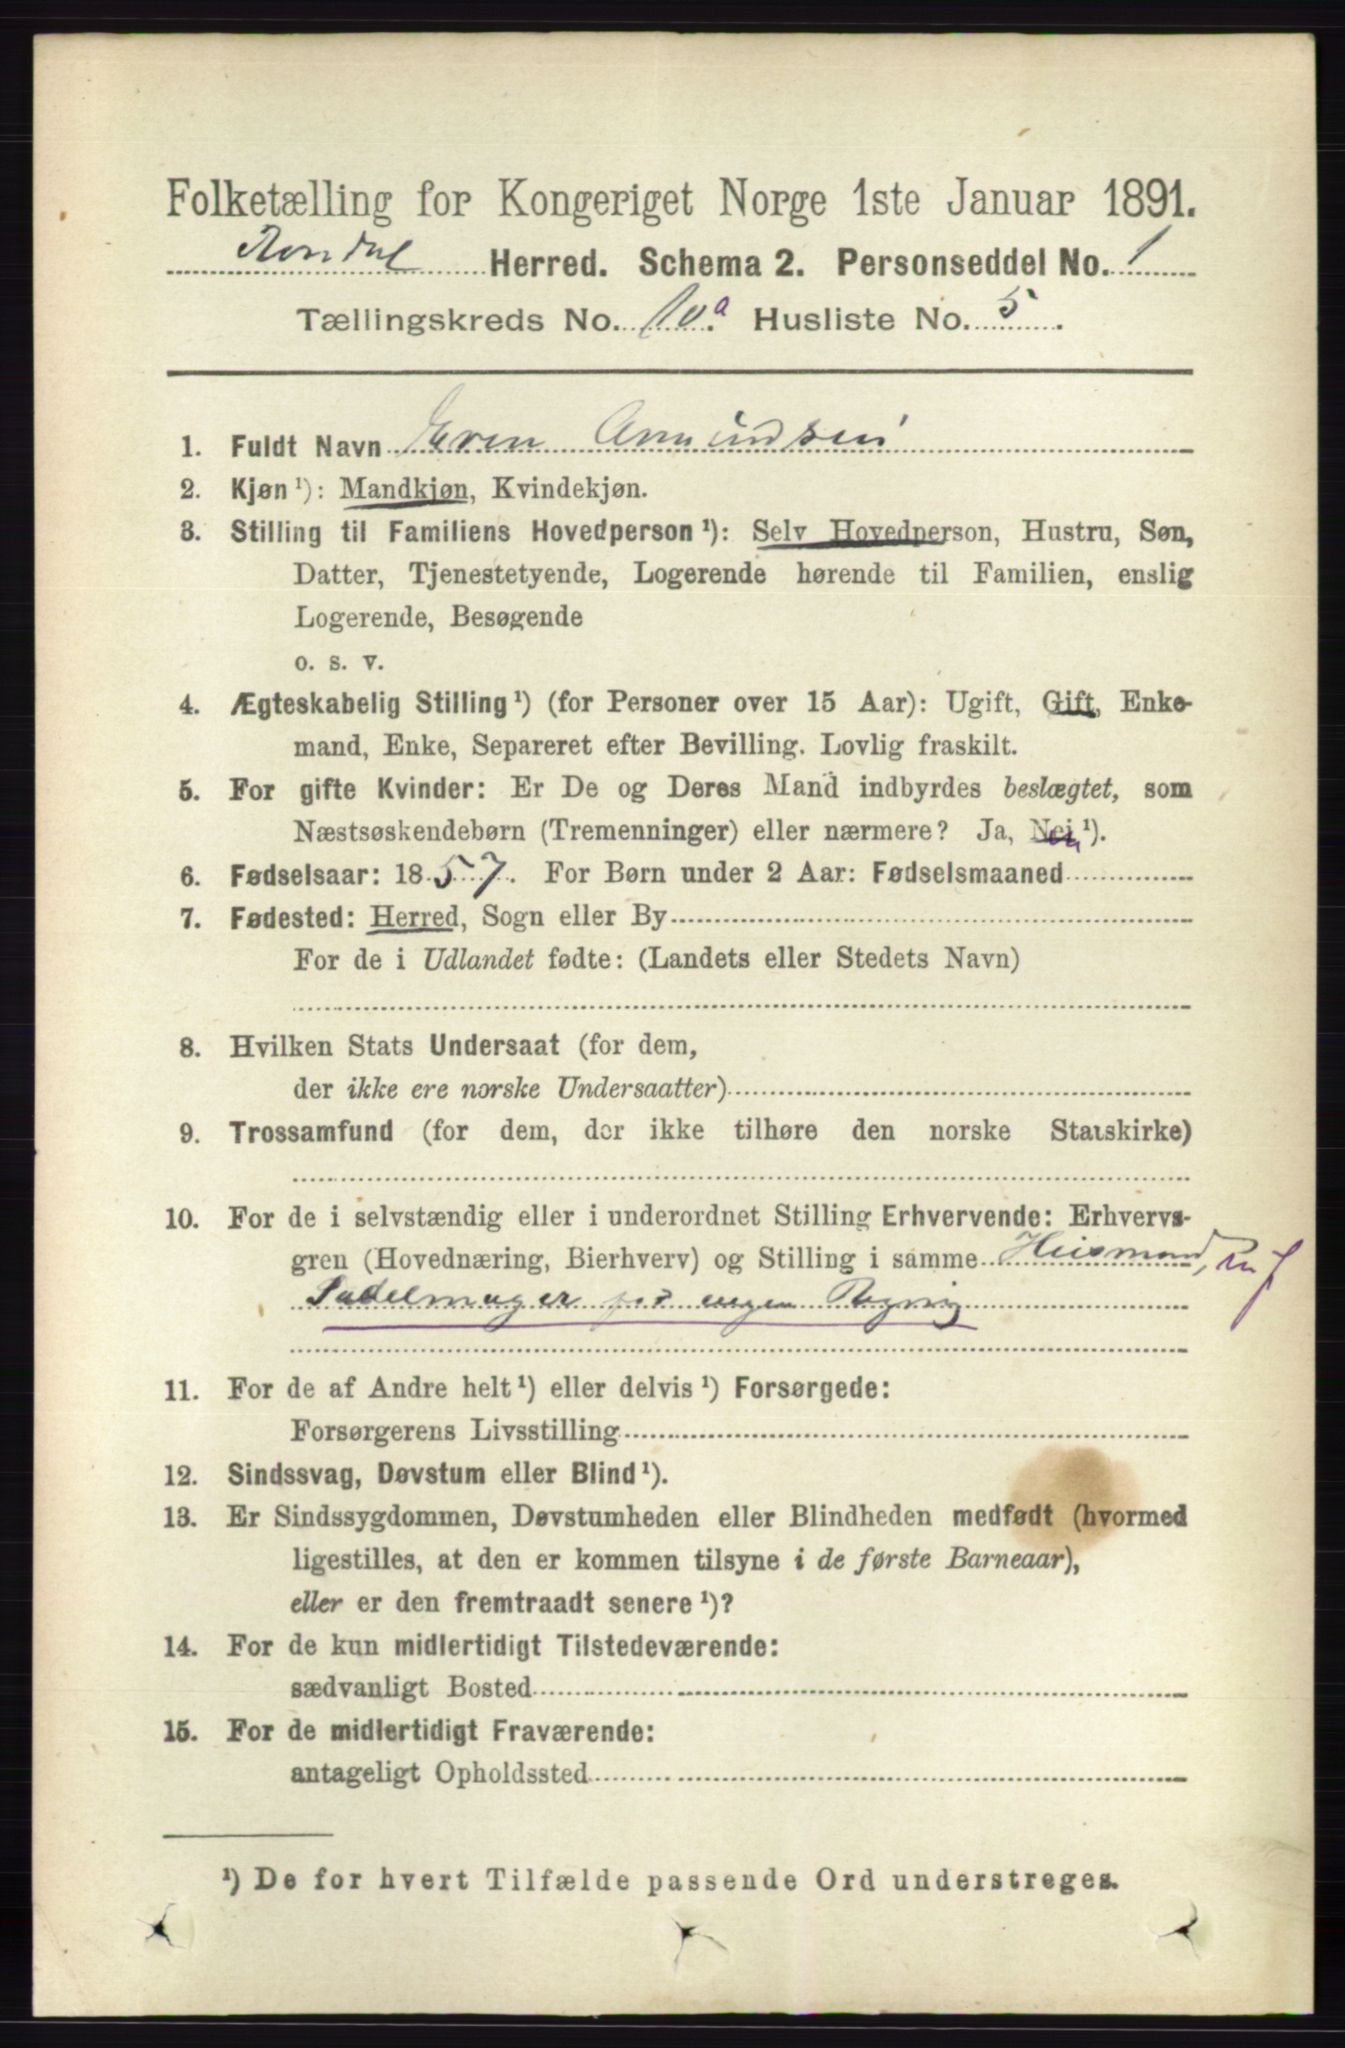 Folketælling for Kongeriget Norge 1ste Januar 1891.
Herred. Schema 2. Personseddel No. 1
Tællingskreds No. 10.a Husliste No. 5.
1. Fuldt Navn Even Amundsen
2. Kjøn ¹): Mandkjøn, Kvindekjøn.
3. Stilling til Familiens Hovedperson ¹): Selv Hovedperson, Hustru, Søn,
Datter, Tjenestetyende, Logerende hørende til Familien, enslig
Logerende, Besøgende
o. s. v.
4. Ægteskabelig Stilling ¹) (for Personer over 15 Aar): Ugift, Gift, Enke-
mand, Enke, Separeret efter Bevilling. Lovlig fraskilt.
5. For gifte Kvinder: Er De og Deres Mand indbyrdes beslægtet, som
Næstsøskendebørn (Tremenninger) eller nærmere? Ja, Nei ¹).
6. Fødselsaar: 1857. For Børn under 2 Aar: Fødselsmaaned
7. Fødested: Herred, Sogn eller By
For de i Udlandet fødte: (Landets eller Stedets Navn)
8. Hvilken Stats Undersaat (for dem,
der ikke ere norske Undersaatter)
9. Trossamfund (for dem, der ikke tilhøre den norske Statskirke)
10. For de i selvstændig eller i underordnet Stilling Erhvervende: Erhvervs-
gren (Hovednæring, Bierhverv) og Stilling i samme Husmand, m j
Sadelmager for egen Regning
11. For de af Andre helt ¹) eller delvis ¹) Forsørgede:
Forsørgerens Livsstilling
12. Sindssvag, Døvstum eller Blind ¹).
13. Er Sindssygdommen, Døvstumheden eller Blindheden medfødt (hvormed
ligestilles, at den er kommen tilsyne i de første Barneaar),
eller er den fremtraadt senere ¹)?
14. For de kun midlertidigt Tilstedeværende:
sædvanligt Bosted
15. For de midlertidigt Fraværende:
antageligt Opholdssted
¹) De for hvert Tilfælde passende Ord understreges.